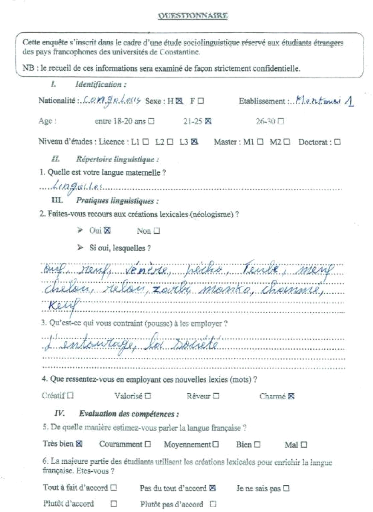 QUESTIONNAIRE
Cette enquête s'inscrit dans le cadre d'une étude sociolinguistique réservé aux étudiants étrangers
des pays francophones des universités de Constantine.
NB : le recueil de ces informations sera examiné de façon strictement confidentielle.
I. Identification :
Nationalité : Congolais Sexe : H ☒ F ☐ Etablissement : Mentouri 1
Age : entre 18-20 ans ☐ 21-25 ☒ 26-30 ☐
Niveau d'études : Licence : L1 ☐ L2 ☐ L3 ☒ Master : M1 ☐ M2 ☐ Doctorat : ☐
II. Répertoire linguistique :
1. Quelle est votre langue maternelle ?
Lingalles
III. Pratiques linguistiques :
2. Faites-vous recours aux créations lexicales (néologisme) ?
➢ Oui ☒ Non ☐
➢ Si oui, lesquelles ?
ouf, meuf, vénère, pécho, Teube, meuf
chelou, relou, zarbi, manko, charmé,
Keuf
3. Qu'est-ce qui vous contraint (pousse) à les employer ?
L'entourage, la société
4. Que ressentez-vous en employant ces nouvelles lexies (mots) ?
Créatif ☐ Valorisé ☐ Rêveur ☐ Charmé ☒
IV. Evaluation des compétences :
5. De quelle manière estimez-vous parler la langue française ?
Très bien ☒ Couramment ☐ Moyennement ☐ Bien ☐ Mal ☐
6. La majeure partie des étudiants utilisent les créations lexicales pour enrichir la langue
française. Etes-vous ?
Tout à fait d'accord ☐ Pas du tout d'accord ☒ Je ne sais pas ☐
Plutôt d'accord ☐ Plutôt pas d'accord ☐